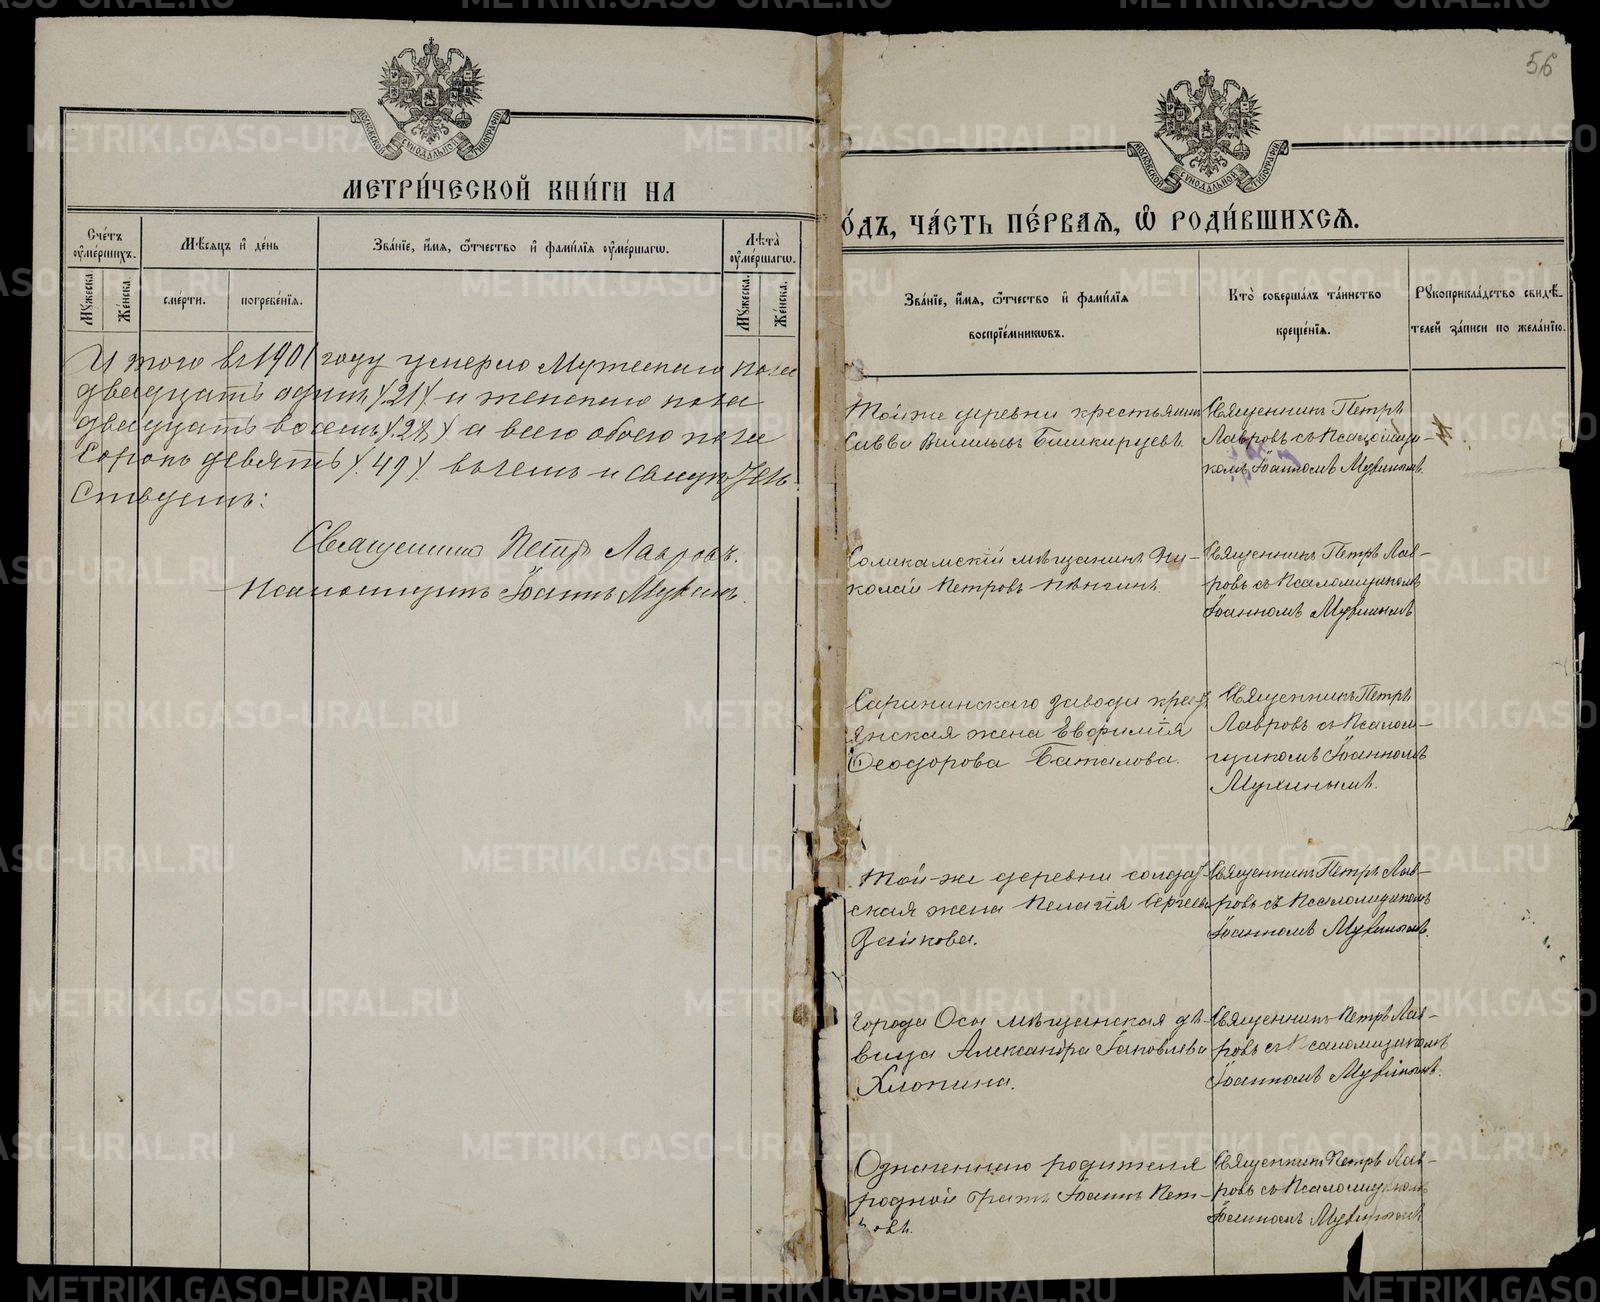 МЕТРИ́ЧЕСКОЙ КНИ́ГИ НА
Сче́тъ ѹ҆ме́ршихъ.
Мѣ́сяцъ и҆ де́нь
Зва́нїе, и҆́мѧ, ѻ҆́тчество и҆ фами́лїѧ ѹ҆ме́ршагѡ.
Лѣ̀та ѹ҆ме́ршагѡ.
Мꙋ́жеска
Же́нска.
сме́рти.
погребе́нїѧ.
Мꙋ́жеска.
Же́нска.
И того въ 1901 году умерло Мужескаго пола
двадцать одинъ /.21/ и женскаго пола
двадцать восемь /.28./ а всего обоего пола
Сорокъ девять /.49/. въ чемъ и свидѣтель
ствуемъ:
Священникъ Петръ Лавровъ.
Псаломщикъ Іоаннъ Мухинъ.
56
О́ДЪ, ЧА́СТЬ ПЕ́РВАѦ, Ѡ҆ РОДИ́ВШИХСѦ.
Зва́нїе, и҆́мѧ, ѻ҆́тчество и҆ фами́лїѧ
воспрїе́мникѡвъ.
Кто̀ соверша́лъ та́инство
креще́нїѧ.
Рꙋкоприкла́дство свидѣ́-
телей за́писи по жела́нїю.
Той же деревни крестьянинъ
Савва Васильевъ Башкирцевъ.
Священникъ Петръ
Лавровъ съ Псаломщи-
комъ Іоанномъ Мухинымъ.
Соликамскій мѣщанинъ Ни-
колай Петровъ
Священникъ Петръ Лав-
ровъ съ Псаломщикомъ
Іоанномъ Мухинымъ
Саранинскаго завода крест
янская жена Евфимія
Ѳеодорова Баталова.
Священникъ Петръ
Лавровъ съ Псалом-
щикомъ Іоанномъ
Мухинымъ.
Той-же деревни солдат
ская жена Пелагія Сергеева
Зайкова.
Священникъ Петръ Лав-
ровъ съ Псаломщикомъ
Іоанномъ Мухинымъ.
Города Осы мѣщанская дѣ-
вица Александра Іаковлева
Хлопина.
Священникъ Петръ Лав-
ровъ съ Псаломщикомъ
Іоанномъ Мухинымъ.
Означеннаго родителя
родной братъ Іоаннъ Пет-
ровъ.
Священникъ Петръ Лав-
ровъ съ Псаломщикомъ
Іоанномъ Мухинымъ
METRIKI.GASO-URAL.RU